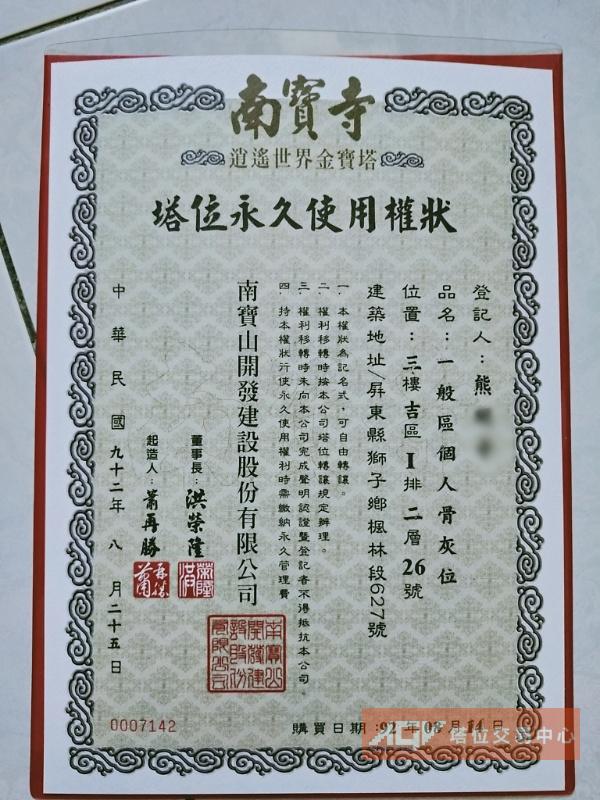 南寶寺
逍遙世界金寶塔
塔位永久使用權狀
登記人：熊
品名：一般區個人骨灰位
位置：三樓吉區I排二層26號
建築地址/屏東縣獅子鄉楓林段627號
一．本權狀為記名式，可自由轉讓。
二．權利移轉時按本公司塔位轉讓規定辦理。
三．權利移轉時未向本公司完成聲明認證暨登記者不得抵抗本公司。
四．持本權狀行使永久使用權利時需繳納永久管理費
南寶山開發建設股份有限公司
董事長：洪榮隆
起造人：蕭再勝
中華民國九十二年八月二十五日
洪榮隆
蕭再勝
南寶山開發建設股份有限公司
0007142
購買日期：92年08月14日
塔位交易中心